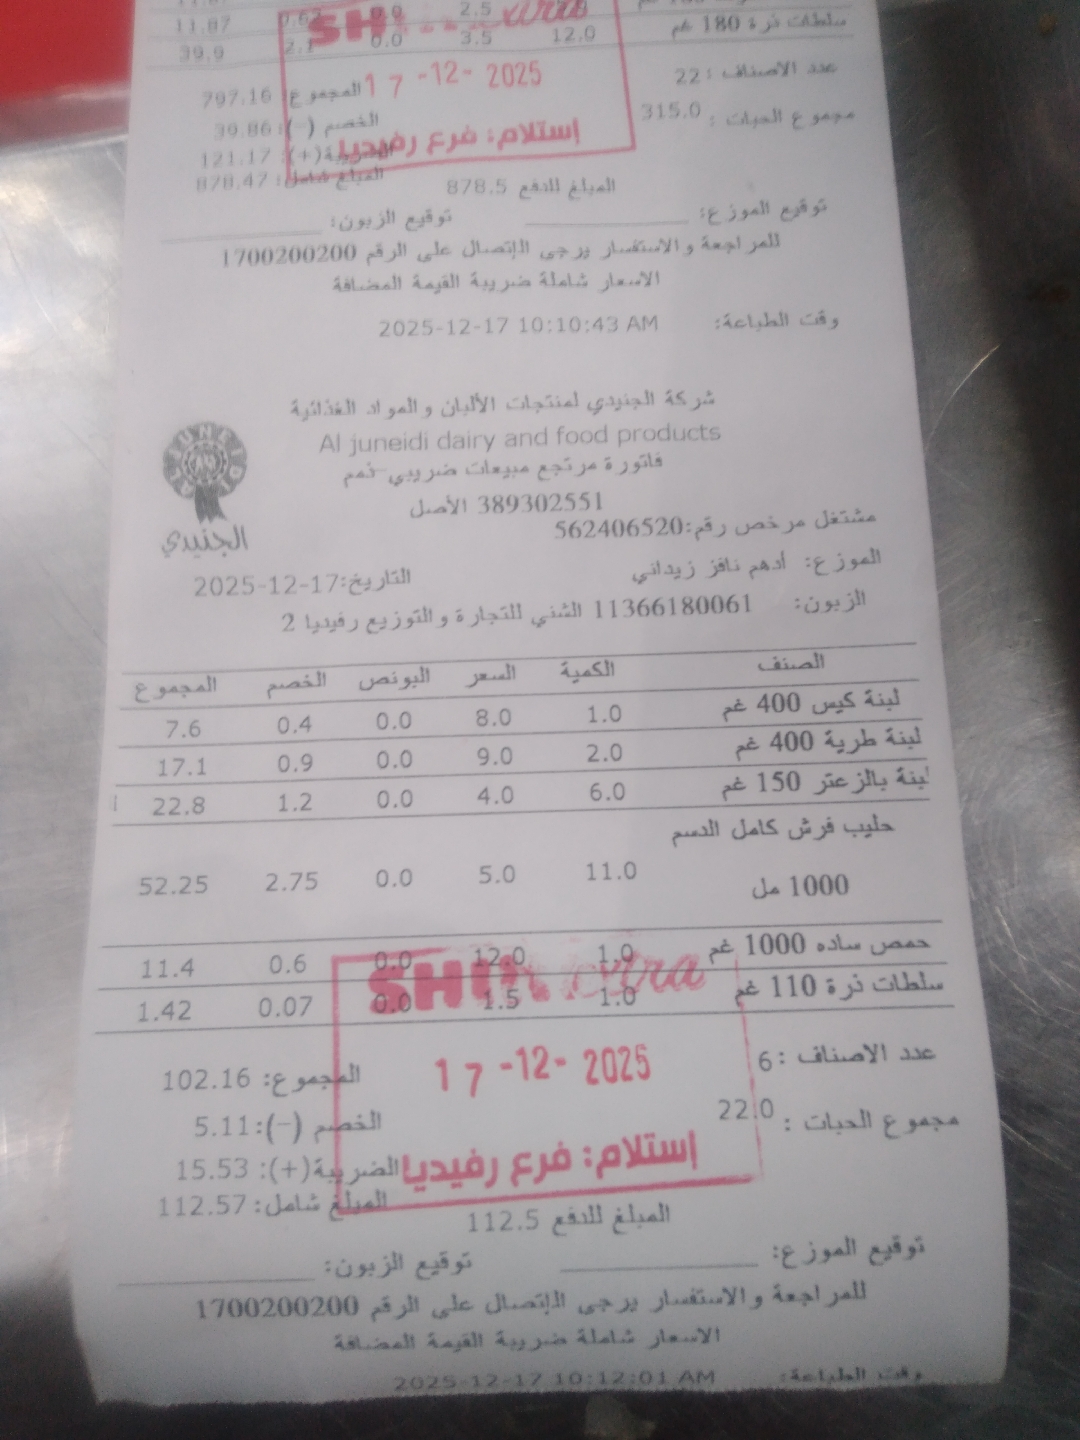 11.87 7.62 0.0 2.5
سلطات ذرة 180 غم 12.0 3.5 0.0 2.1 39.9
عدد الاصناف : 22
المجموع: 797.16
مجموع الحبات : 315.0
الخصم (-): 39.86
الضريبة(+): 121.17
المبلغ شامل: 878.47
المبلغ للدفع 878.5
17 -12- 2025
إستلام: فرع رفيديا
توقيع الموزع: توقيع الزبون:
للمراجعة والاستفسار يرجى الإتصال على الرقم 1700200200
الاسعار شاملة ضريبة القيمة المضافة
وقت الطباعة: 2025-12-17 10:10:43 AM
شركة الجنيدي لمنتجات الألبان والمواد الغذائية
Al juneidi dairy and food products
فاتورة مرتجع مبيعات ضريبي-ذمم
389302551 الأصل
الجنيدي
مشتغل مرخص رقم:562406520
الموزع: أدهم نافز زيداني التاريخ:2025-12-17
الزبون: 11366180061 الشني للتجارة والتوزيع رفيديا 2
الصنف الكمية السعر البونص الخصم المجموع
لبنة كيس 400 غم 1.0 8.0 0.0 0.4 7.6
لبنة طرية 400 غم 2.0 9.0 0.0 0.9 17.1
لبنة بالزعتر 150 غم 6.0 4.0 0.0 1.2 22.8
حليب فرش كامل الدسم
1000 مل 11.0 5.0 0.0 2.75 52.25
حمص ساده 1000 غم 1.0 12.0 0.0 0.6 11.4
سلطات ذرة 110 غم 1.0 1.5 0.0 0.07 1.42
extra
17 -12- 2025
إستلام: فرع رفيديا
عدد الاصناف : 6
المجموع: 102.16
مجموع الحبات : 22.0
الخصم (-): 5.11
الضريبة(+): 15.53
المبلغ شامل: 112.57
المبلغ للدفع 112.5
توقيع الموزع: توقيع الزبون:
للمراجعة والاستفسار يرجى الإتصال على الرقم 1700200200
الاسعار شاملة ضريبة القيمة المضافة
وقت الطباعة: 2025-12-17 10:12:01 AM